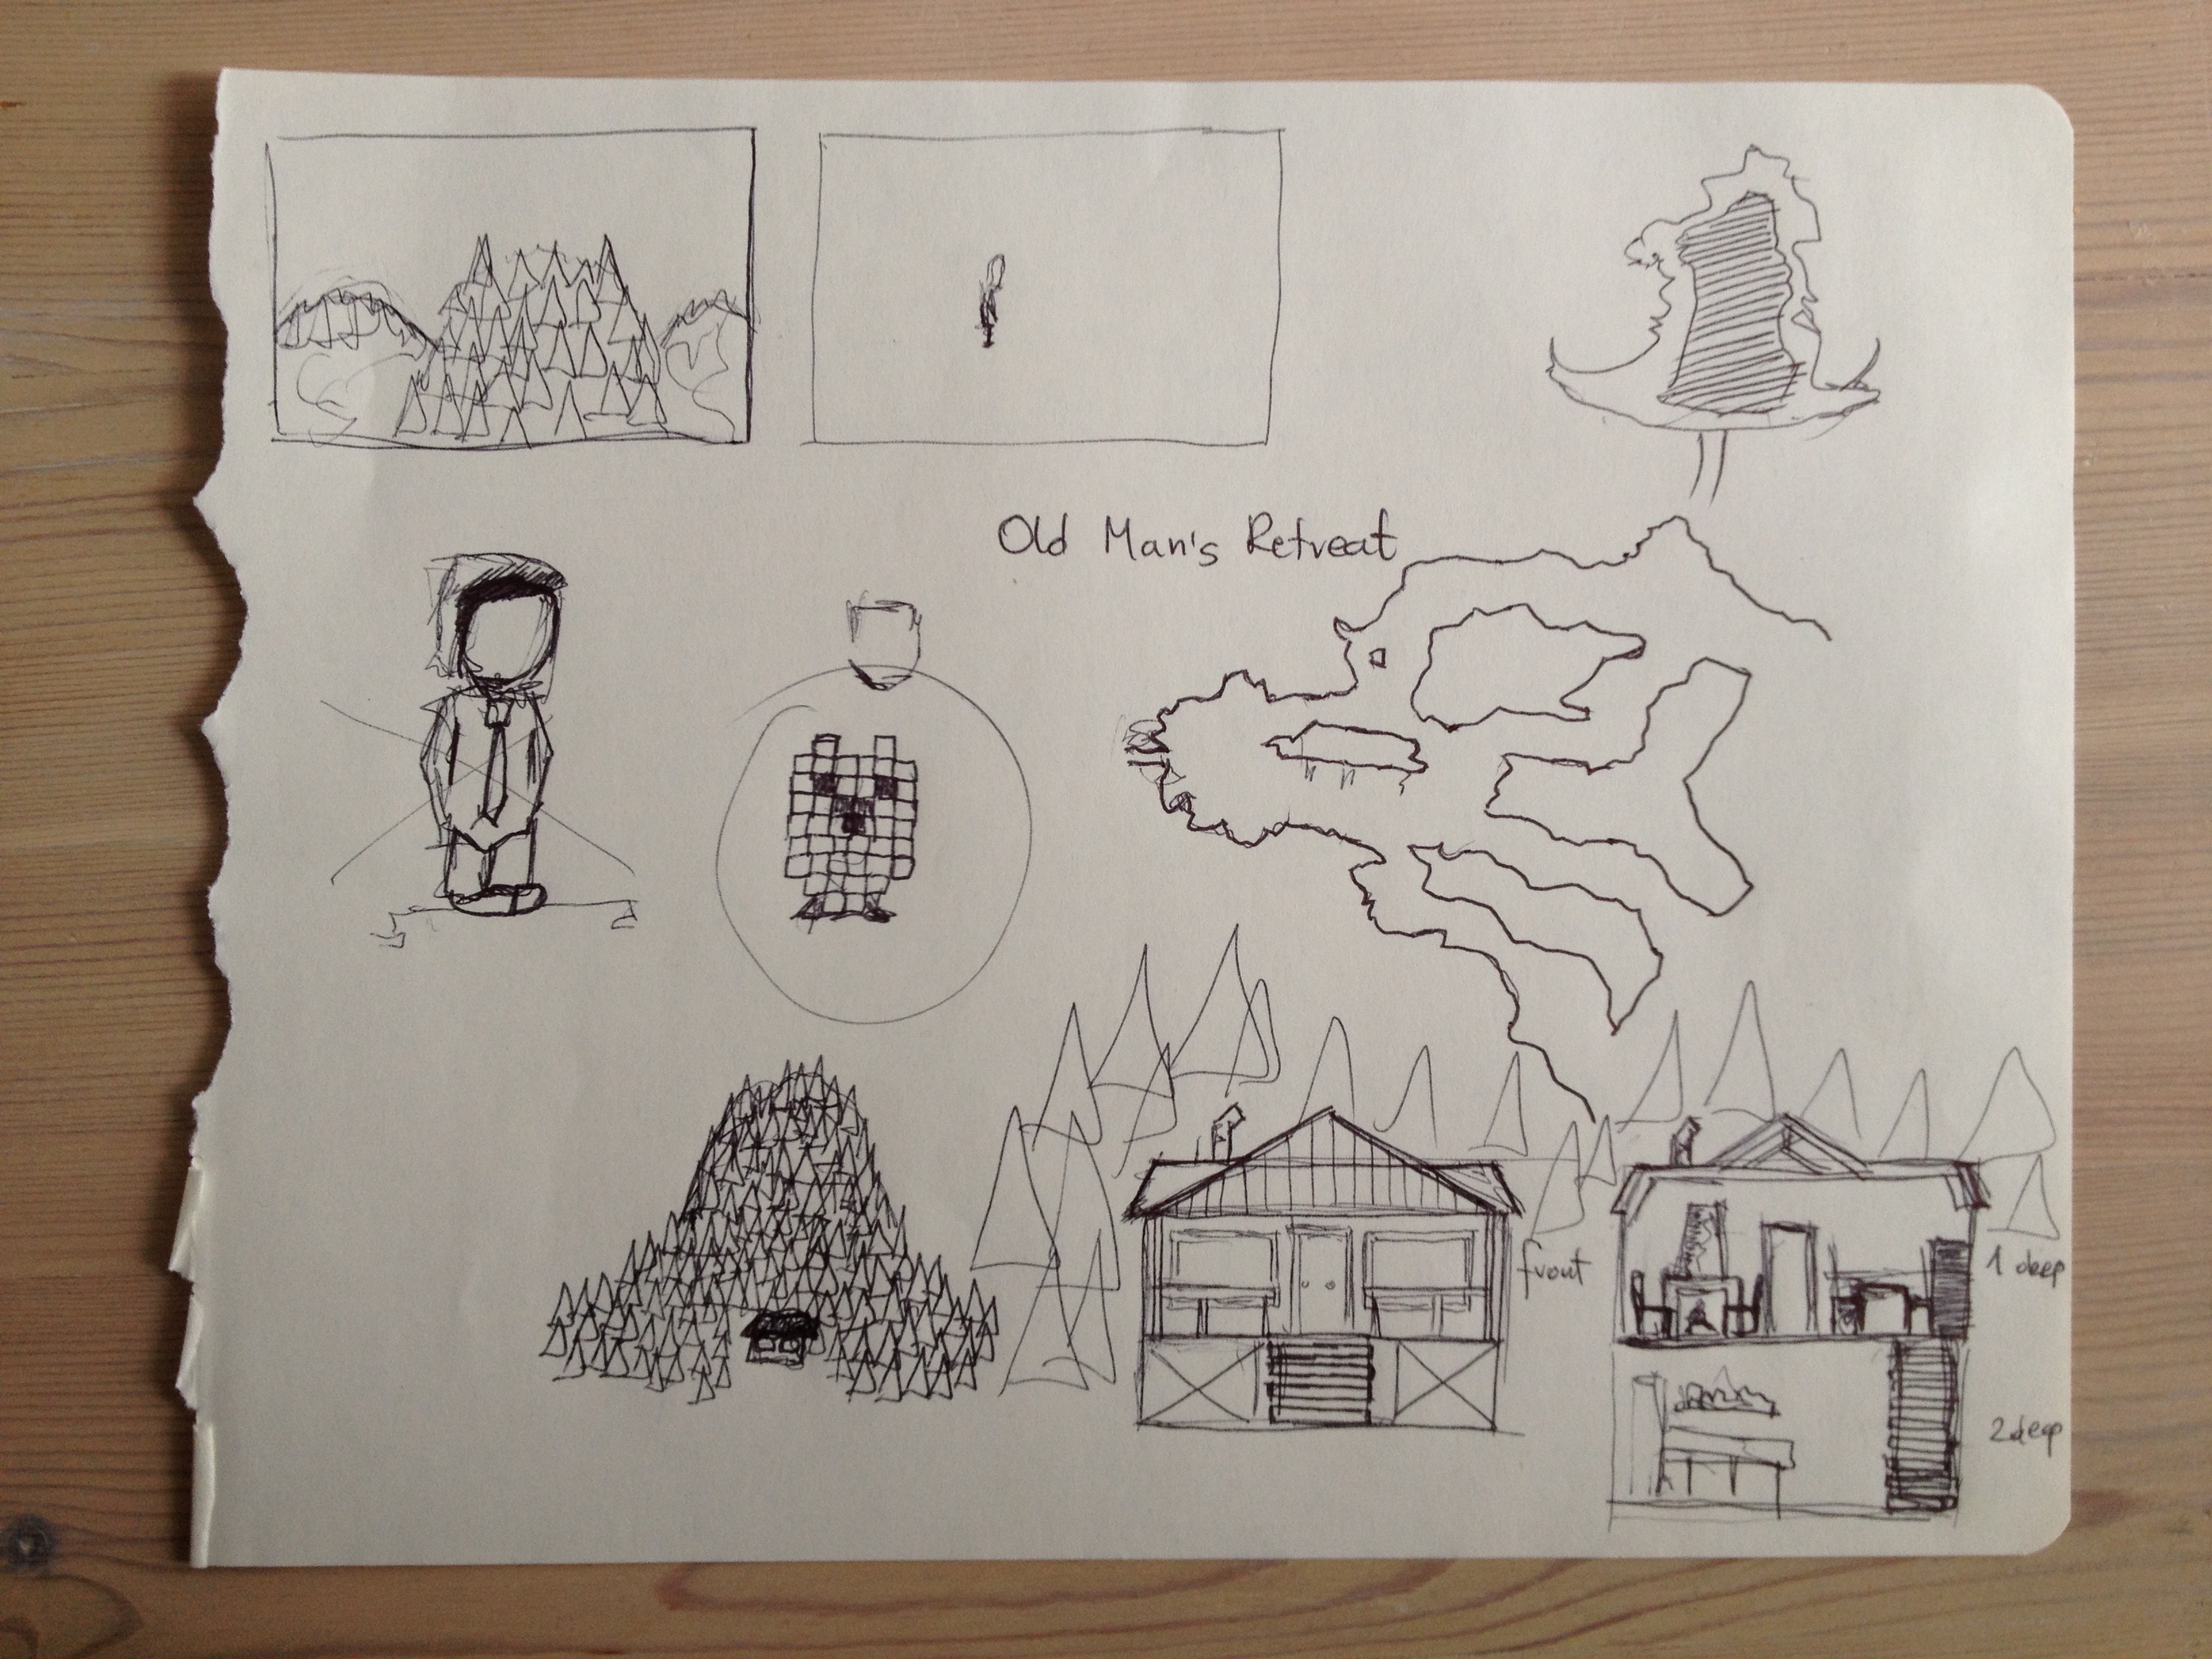 Old Man's Retreat
front
1 deep
2 deep